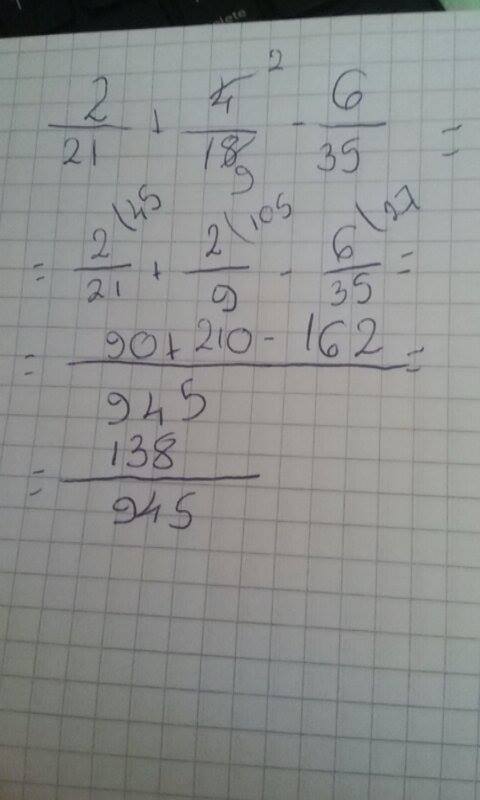 2/21 + 4/18 2 9 - 6/35 =
= 2/21 \45 + 2/9 \105 - 6/35 \27 =
= 90 + 210 - 162 / 945 =
= 138 / 945